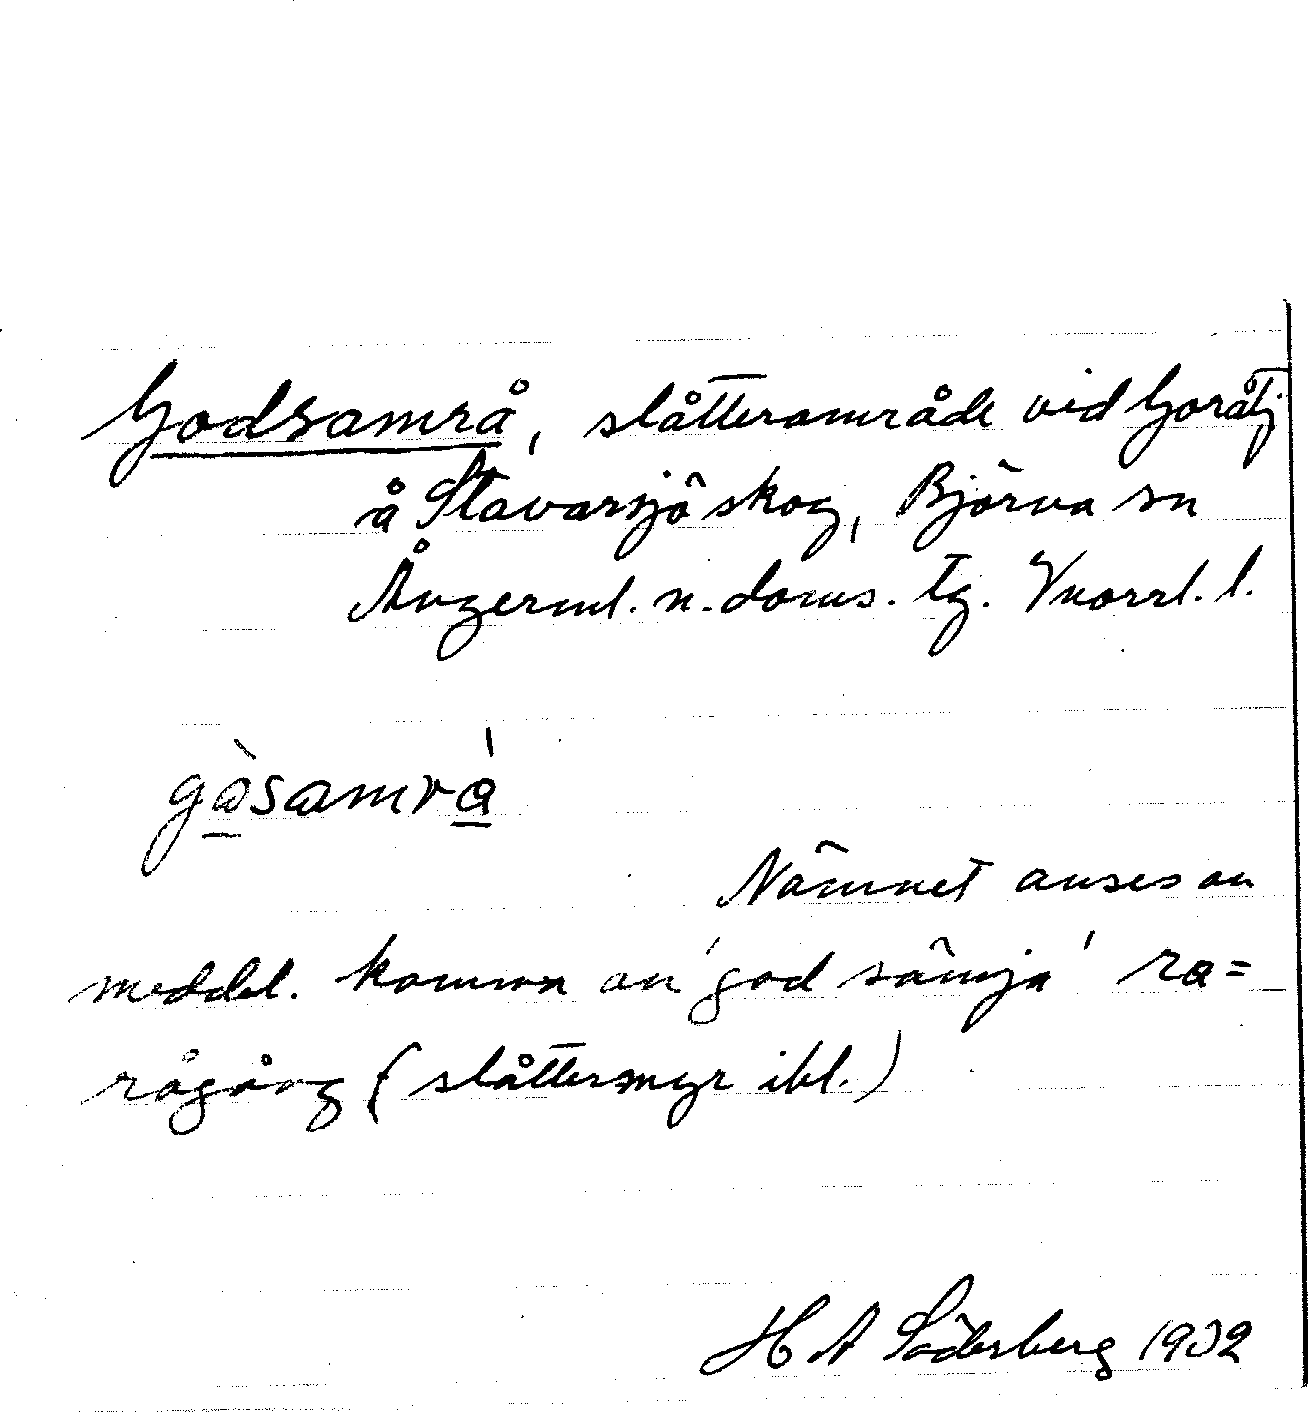 Godsamrå, slåtterområde vid Goråtj
å Stavarsjö skog, Björna sn
Ångerml. n. doms. tg. Vnorrl. l.
gåsamrå
Namnet anses av
meddel. komma av 'god sämja' ra=
rågång (slåttermyr ibl.)
H A Söderberg 1932